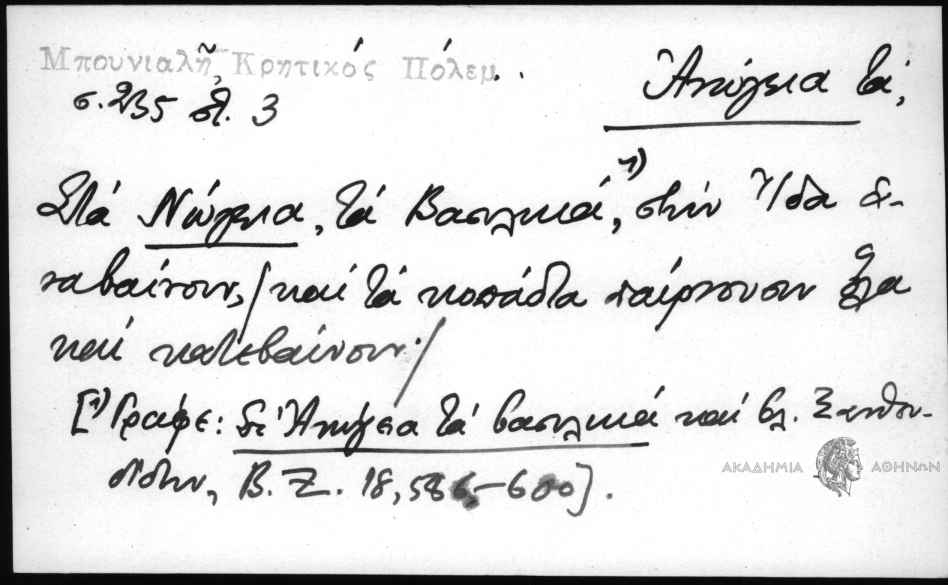 Μπουνιαλῆ, Κρητικός Πόλεμ..
Ἀνώγεια τά,
σ. 235 στ. 3
Στά Νώγεια, τά Βασιλικά,¹) στήν Ἴδα ἀ-
ναβαίνουν,/καί τά κοπάδια παίρνουσιν ὅλα
καί κατεβαίνουν·/
[¹) Γράφε: στ' Ἀνώγεια τά βασιλικά καί βλ. Ξανθου-
δίδην, B. Z. 18, 586-600].
ΑΚΑΔΗΜΙΑ ΑΘΗΝΩΝ